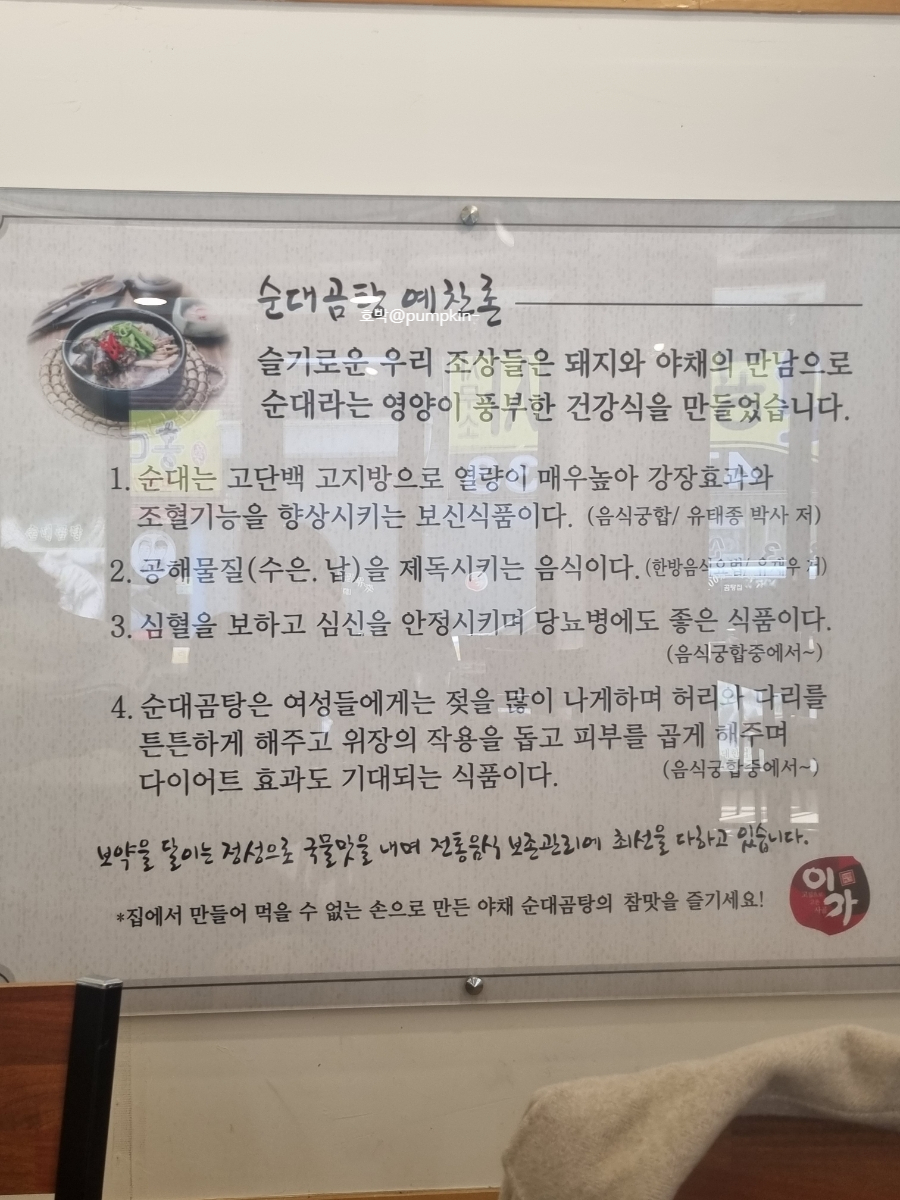 순대곰탕 예찬론
호박@pumpkin~
슬기로운 우리 조상들은 돼지와 야채의 만남으로
순대라는 영양이 풍부한 건강식을 만들었습니다.
1. 순대는 고단백 고지방으로 열량이 매우높아 강장효과와
조혈기능을 향상시키는 보신식품이다. (음식궁합/ 유태종 박사 저)
2. 공해물질(수은.납)을 제독시키는 음식이다. (한방음식요법/ 저)
3. 심혈을 보하고 심신을 안정시키며 당뇨병에도 좋은 식품이다.
(음식궁합중에서~)
4. 순대곰탕은 여성들에게는 젖을 많이 나게하며 허리와 다리를
튼튼하게 해주고 위장의 작용을 돕고 피부를 곱게 해주며
다이어트 효과도 기대되는 식품이다. (음식궁합중에서~)
보약을 달이는 정성으로 국물맛을 내며 전통음식 보존관리에 최선을 다하고 있습니다.
*집에서 만들어 먹을 수 없는 손으로 만든 야채 순대곰탕의 참맛을 즐기세요!
이가